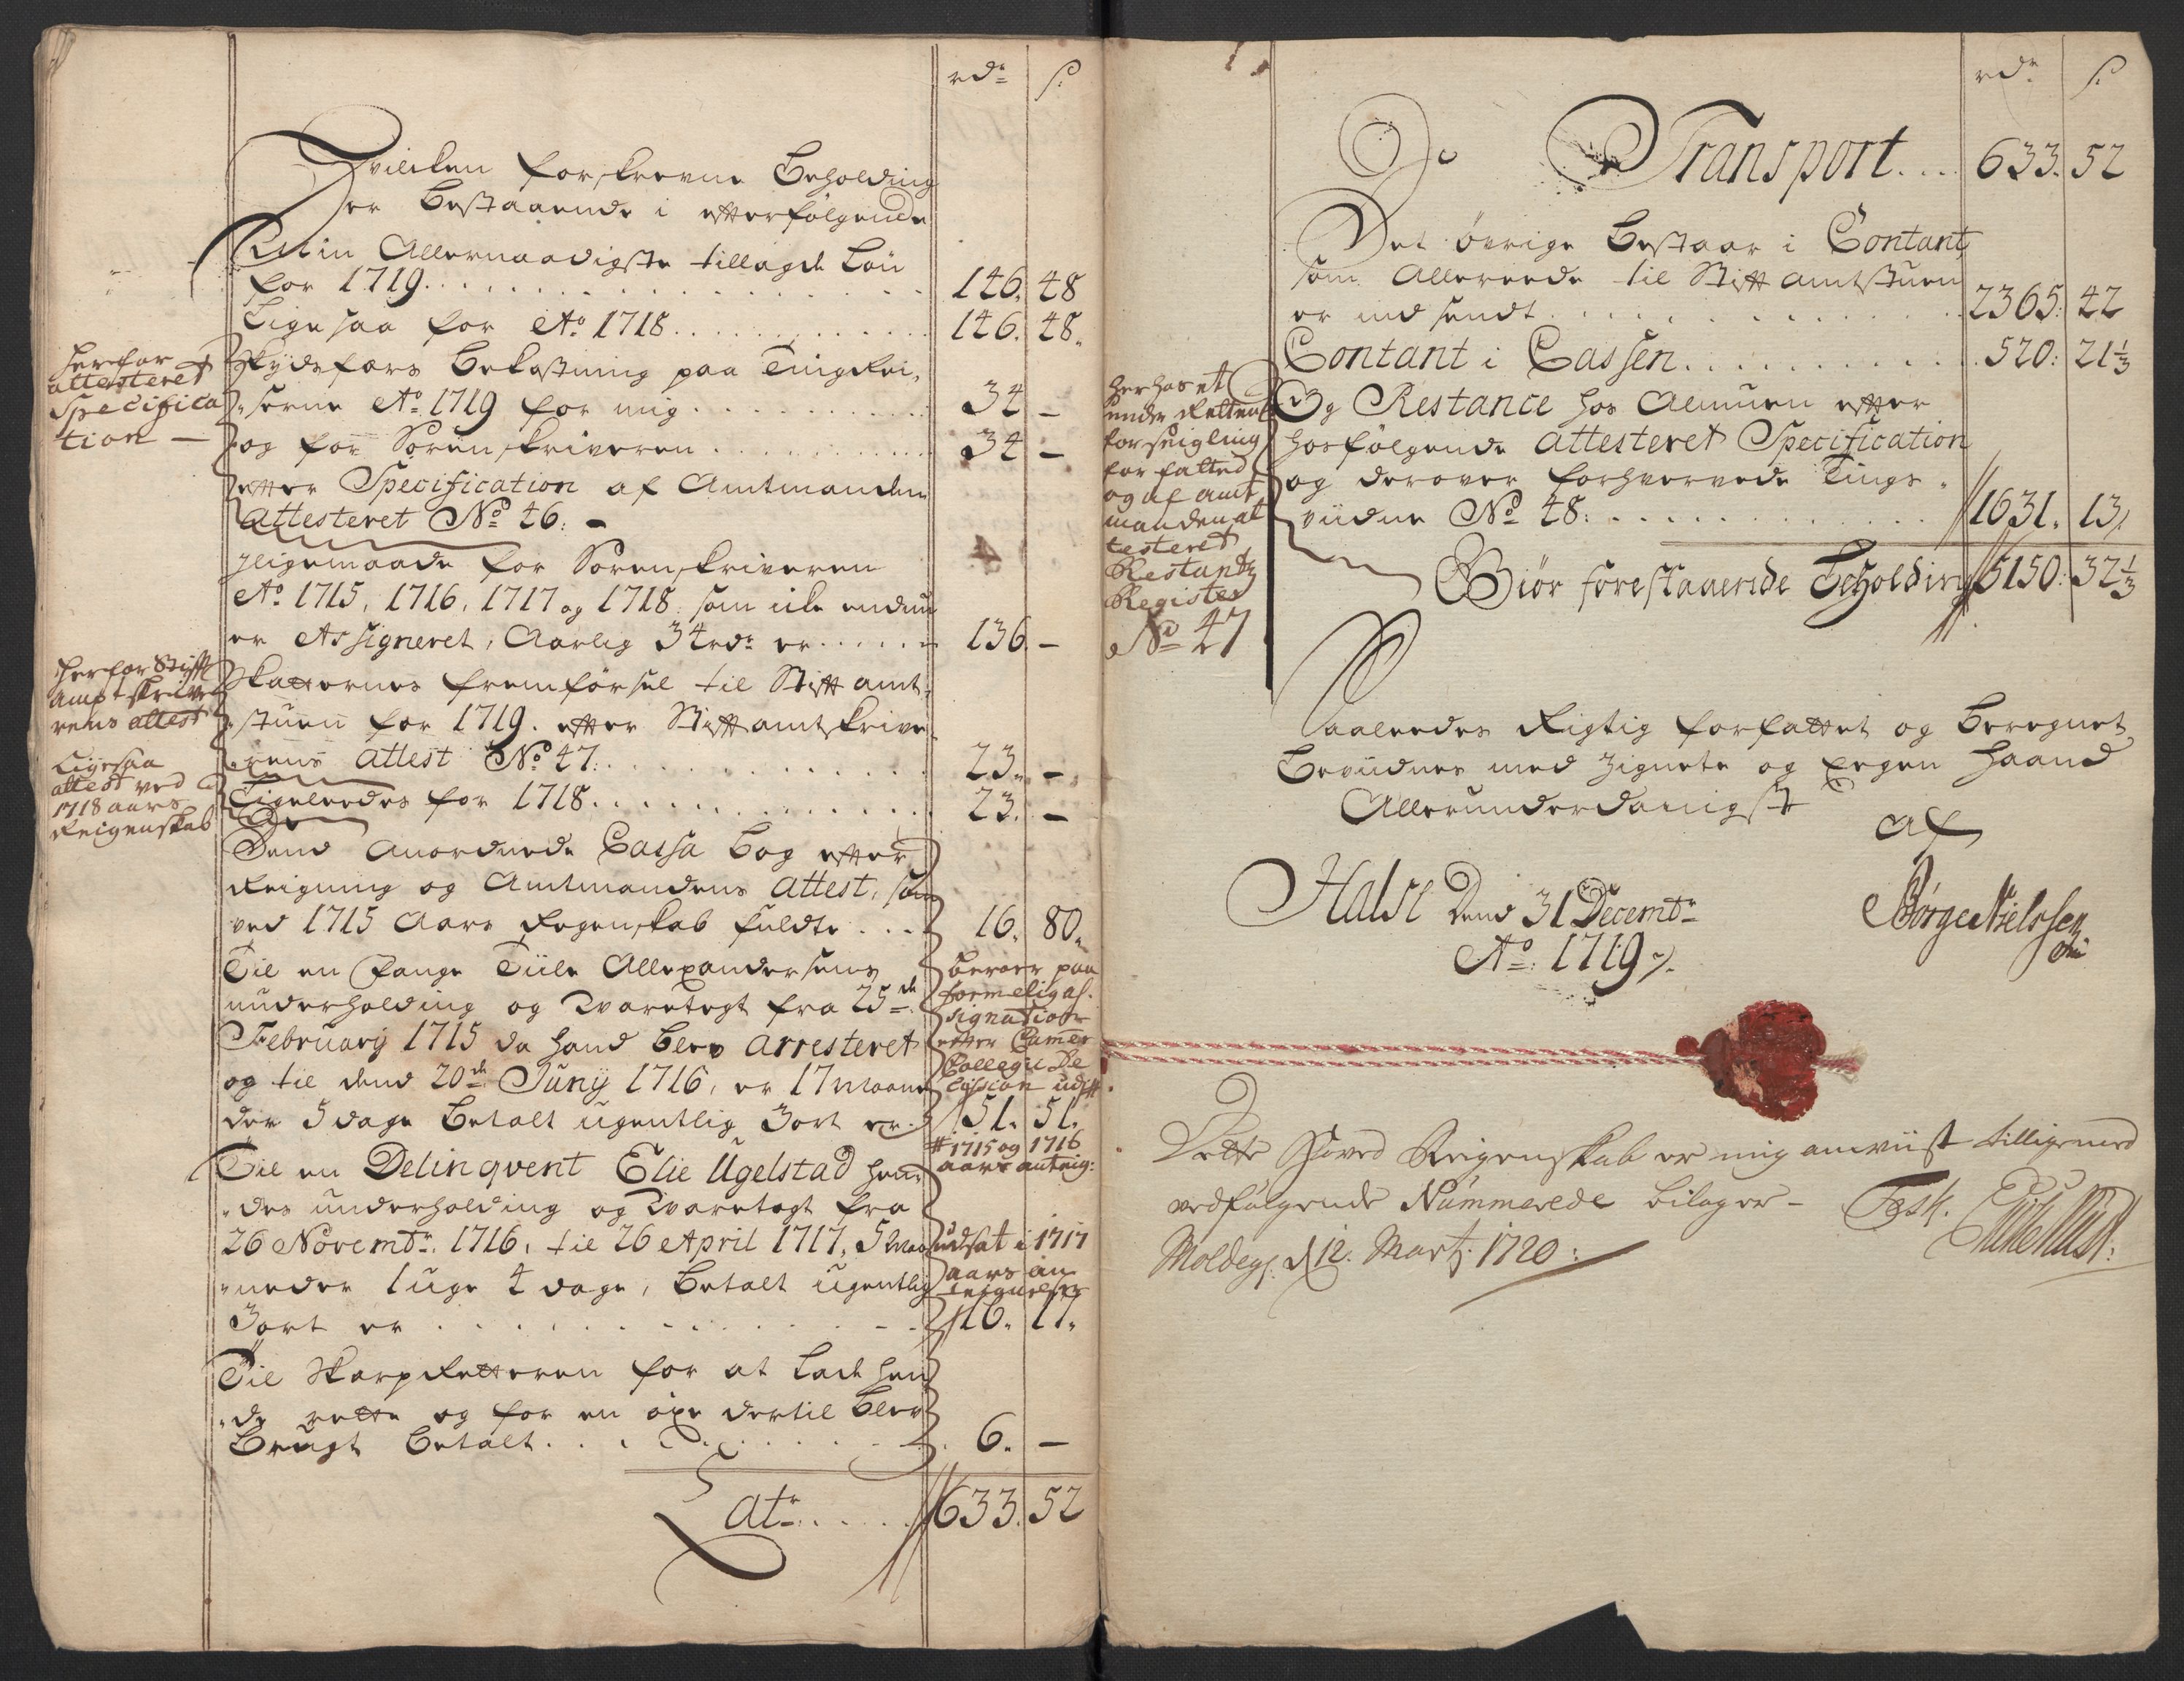 rdr ß.
Hvilcken forskrevne Beholding
er Bestaaende i efterfölgende
Min Allernaadigste tillagde Løn
for 1719. . . . 146. 48
Lige saa for Ao 1718. . . . 146. 48.
herfor
attesteret
Specifica
tion —
Skydsfærs Bekostning paa Tingrei„
„serne Ao 1719 for mig . . . 34 —
og for Sorenskriveren . . . 34 —
efter Specification af Amtmanden
attesteret No 46: —
Jligemaade for Sorenskriveren
Ao 1715, 1716, 1717 og 1718. som icke endnu
er Assigneret, Aarlig 34 rdr er . . . 136. —
herfor Stifft
Amptskrive
rens attest
Skatternes fremförsel til Stiftamt„
„stuen for 1719. efter Stiftamtskrive„
„rens attest No 47: . . . 23. —
Ligesaa
attest ved
1718 aars
Reigenskab
Ligeleedes for 1718. . . . 23. —
Dend Anordnede Cassa Bog efter
Reigning og Amtmandens attest, som
ved 1715 Aars Regenskab fuldte . . . 16. 80.
Til en Fange Tiile Allexandersens
underholding og Varetegt fra 25de
February 1715 da hand blev arresteret
og til dend 20de Junÿ 1716, er 17 Maane
der 5 dage Betalt ugentlig 3 ort er . 51. 51.
beroer paa
formelig as„
signation
efter Camer
Collegii De
cission udsat
# 1715 og 1716
aars anteig:
Til en Delinqvent Elie Ugelstad hen„
„des underholding og Varetegt fra
26 Novembr. 1716, til 26 April 1717, 5 Maa
„neder 1 uge 4 dage, Betalt ugentlig
3 ort er . . . 16. 17.
udsat i 1717
aars an
teignelser
Til Skarpretteren for at lade hen
„de rette og for en öxe dertil blev
Brugt Betalt. . . . 6. —
Latr. . . . 633. 52
rdr ß
Transport. . . 633. 52
Det övrige Bestaar i Contant
som Allereede til Stiftamtstuen
er ind sendt . . . 2365: 42
Contant i Cassen. . . . 520: 21 1/3
her hos et
under Retten
forseigling
forfatted
og af amt
manden at
testeret
Restantz
Register
No 47
Og Restance hos Almuen efter
hosfölgende attesteret Specification
og derover forhvervede Tings„
viidne No 48: . . . 1631. 13.
Giör forestaaende Beholding 5150: 32 1/3
Saaleedes Rigtig forfattet og beregnet
Beviidnes med Zignete og Eegen Haand
Allerunderdanigst
af
Halse Dend 31 Decembr
Ao: 1719
Börge Nielssen
Dette Hoved Reigenskab er mig anviist tilligemed
vedfølgende Nummerede bilager —
Moldeg: d 12. Martj. 1720: